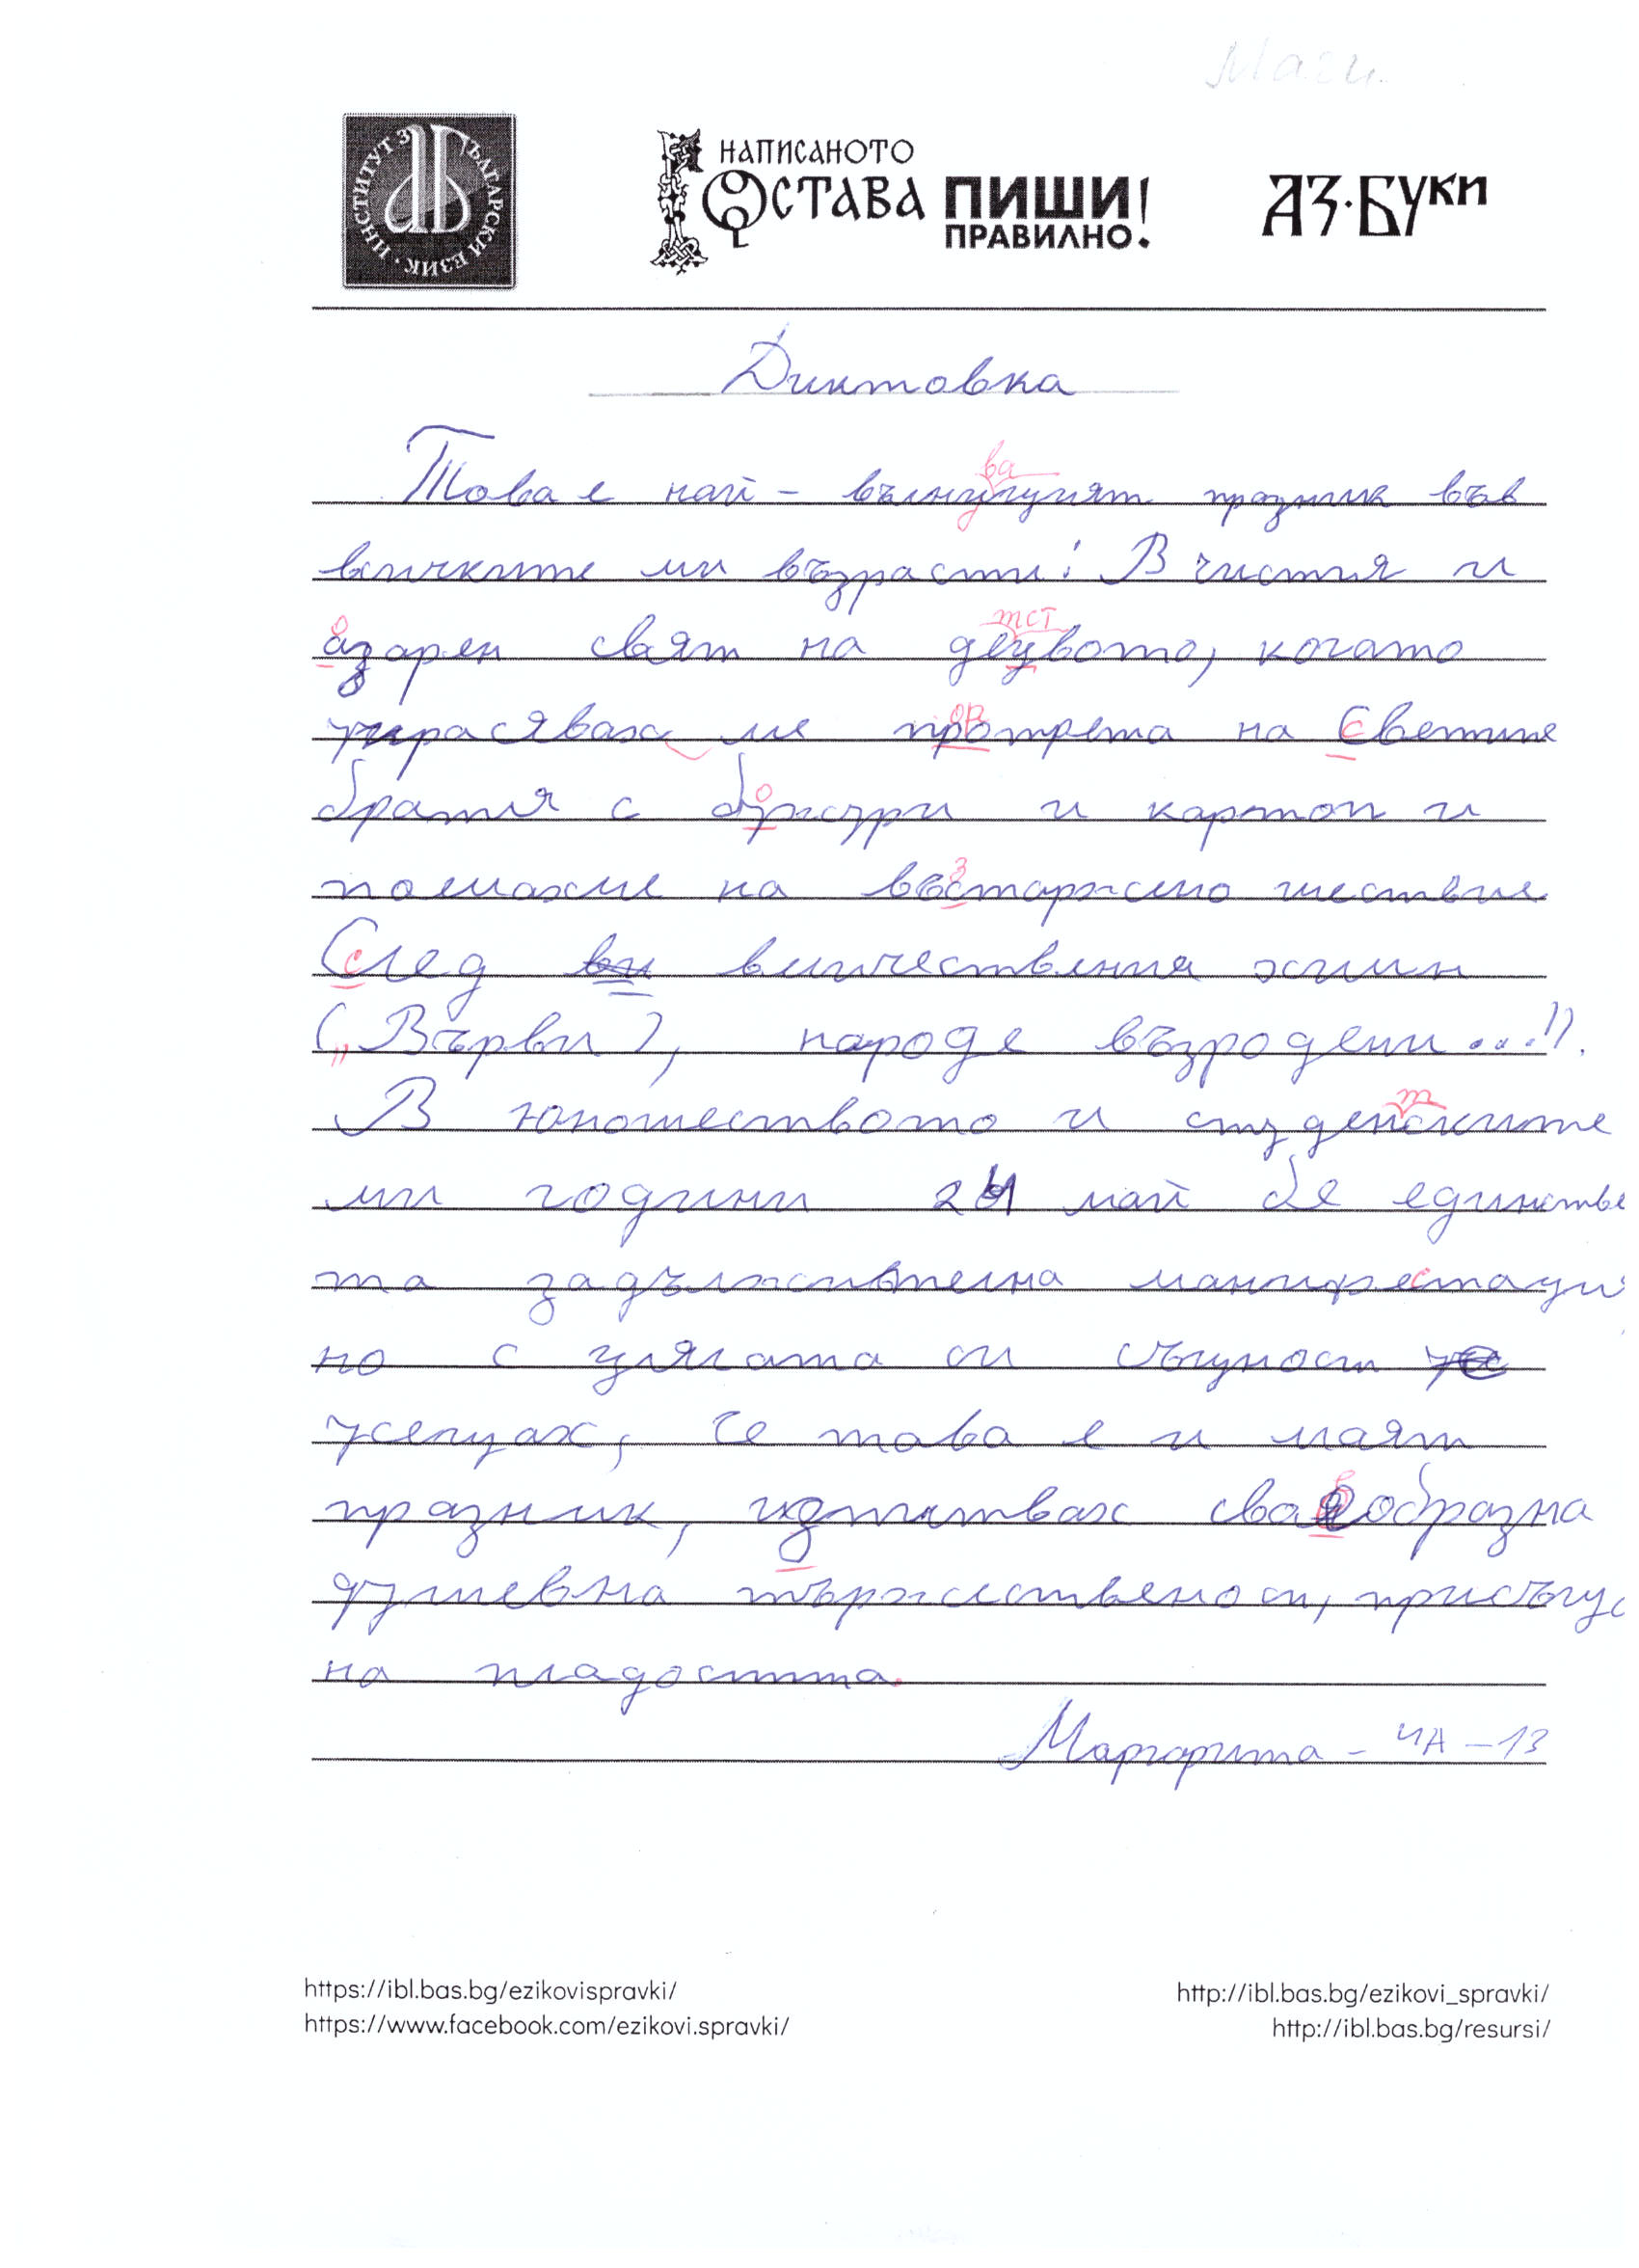 Маги
ИНСТИТУТ ЗА БЪЛГАРСКИ ЕЗИК
НАПИСАНОТО
ОСТАВА ПИШИ
ПРАВИЛНО!
АЗ·БУКИ
Диктовка
Това е най - вълнуващият празник във
ва
всичките ми възрасти! В чистия и
азарен свят на децвото, когато
о тст
украсявахме протрета на Светите
ор с
братя с бужури и картон и
о
помахме на въстаржено шествие
з
След величествения химн
с
(„Върви), народе възродени...!).
В юношеството и студенските
т
ми години 24 май бе единстве
та задължителна манифестаци
но с цялата си същност
усещах, че това е и моят
празник, изпитвах сваеобразна
душевна тържественост, присъщо
на младостта.
Маргарита - 4А - 13
https://ibl.bas.bg/ezikovispravki/ http://ibl.bas.bg/ezikovi_spravki/
https://www.facebook.com/ezikovi.spravki/ http://ibl.bas.bg/resursi/